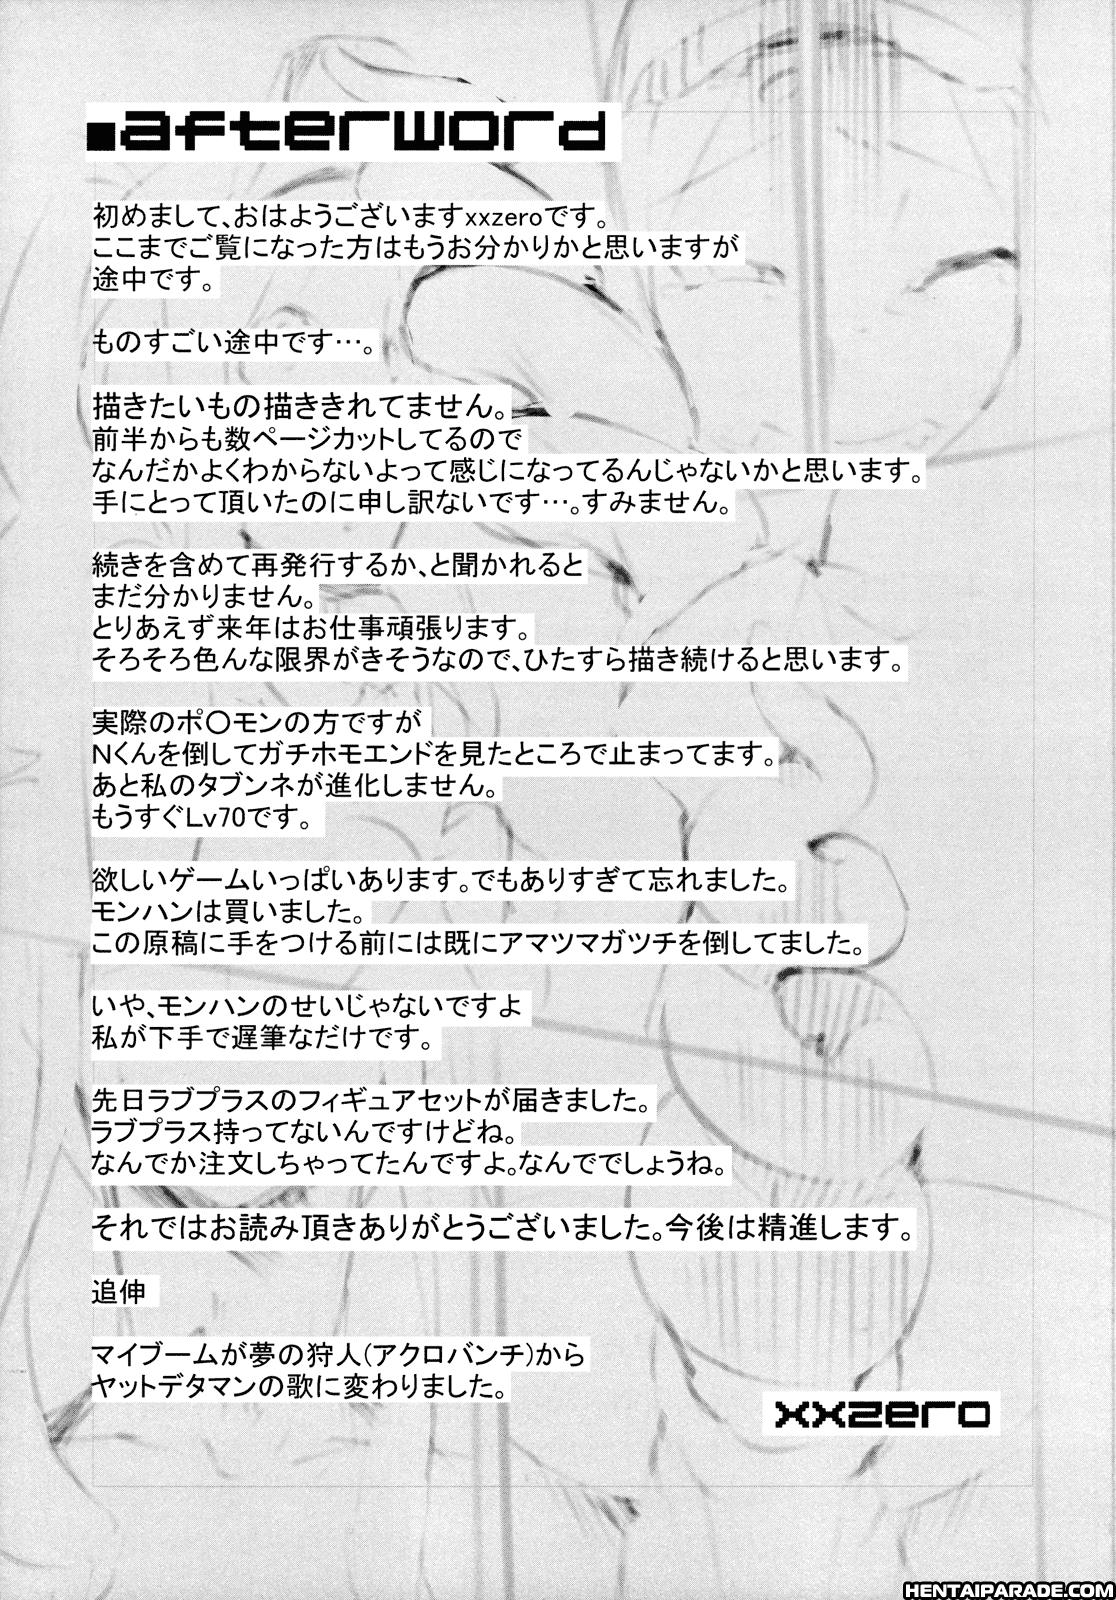 ■afterword
初めまして、おはようございますxxzeroです。
ここまでご覧になった方はもうお分かりかと思いますが
途中です。
ものすごい途中です…。
描きたいもの描ききれてません。
前半からも数ページカットしてるので
なんだかよくわからないよって感じになってるんじゃないかと思います。
手にとって頂いたのに申し訳ないです…。すみません。
続きを含めて再発行するか、と聞かれると
まだ分かりません。
とりあえず来年はお仕事頑張ります。
そろそろ色んな限界がきそうなので、ひたすら描き続けると思います。
実際のポ〇モンの方ですが
Nくんを倒してガチホモエンドを見たところで止まってます。
あと私のタブンネが進化しません。
もうすぐLv70です。
欲しいゲームいっぱいあります。でもありすぎて忘れました。
モンハンは買いました。
この原稿に手をつける前には既にアマツマガツチを倒してました。
いや、モンハンのせいじゃないですよ
私が下手で遅筆なだけです。
先日ラブプラスのフィギュアセットが届きました。
ラブプラス持ってないんですけどね。
なんでか注文しちゃってたんですよ。なんででしょうね。
それではお読み頂きありがとうございました。今後は精進します。
追伸
マイブームが夢の狩人(アクロバンチ)から
ヤットデタマンの歌に変わりました。
xxzero
HENTAIPARADE.COM